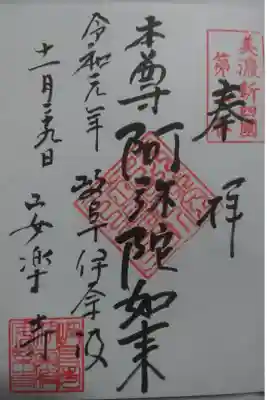 美濃新四國
第
奉拝
本尊阿弥陀如来
岐阜伊奈波
令和元年
十一月二九日
安楽寺